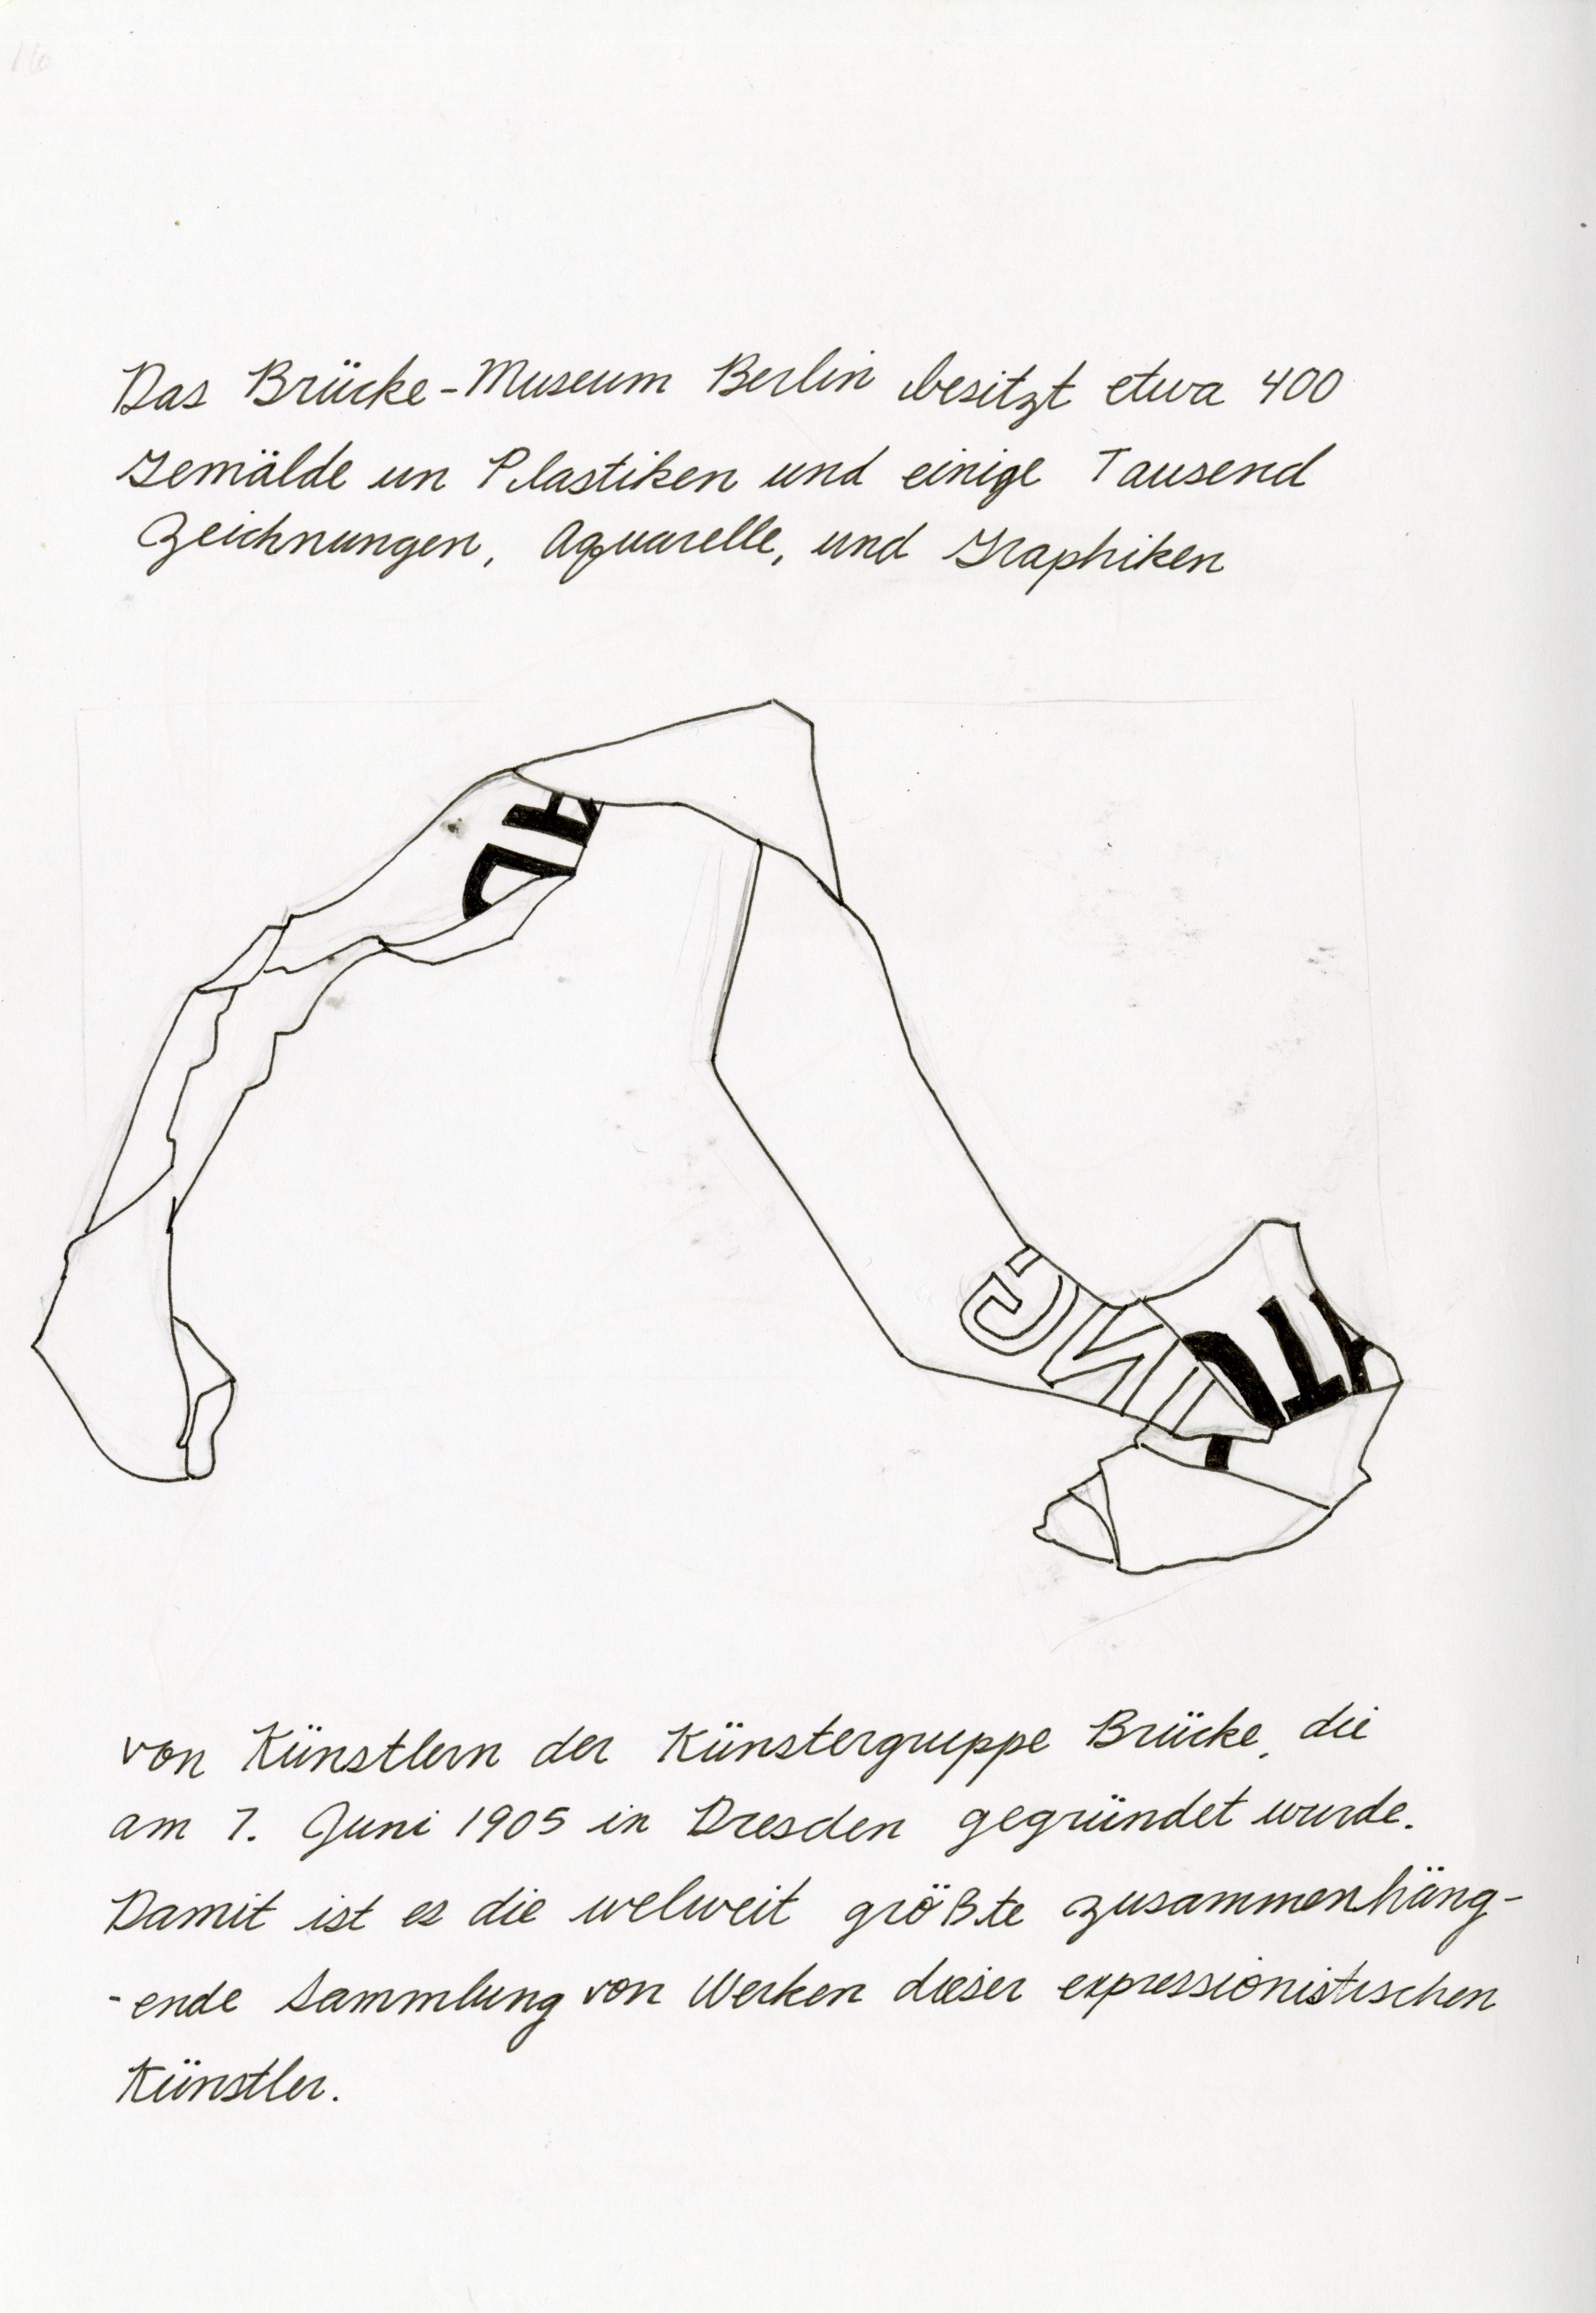 16
Das Brücke-Museum Berlin besitzt etwa 400
Gemälde un Plastiken und einige Tausend
Zeichnungen, Aquarelle, und Graphiken
von Künstlern der Künstergruppe Brücke, die
am 7. Juni 1905 in Dresden gegründet wurde.
Damit ist es die welweit größte zusammenhäng-
-ende Sammlung von Werken dieser expressionistischen
Künstler.